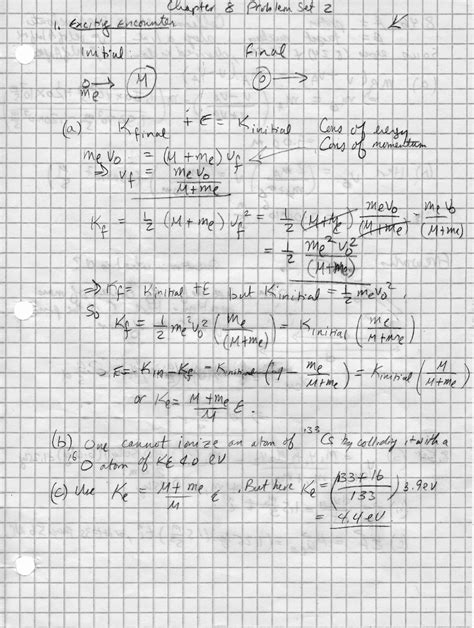 Chapter 8 Problem Set 2
1. Exciting Encounter
Initial Final
me M
(a) K_final + E = K_initial Cons of energy
Cons of momentum
me v0 = (M + me) vf
⇒ vf = me v0 / (M + me)
Kf = 1/2 (M + me) vf² = 1/2 (M + me) me v0 / (M + me) · me v0 / (M + me)
= 1/2 me² v0² / (M + me)
⇒ Kf = K_initial + E but K_initial = 1/2 me v0²,
So
Kf = 1/2 me² v0² (me / (M + me)) = K_initial (me / (M + me))
E = Kin - Kf - K_initial (1 - me / (M + me)) = K_initial (M / (M + me))
or Ke = (M + me) / M E.
(b) One cannot ionize an atom of ¹³³Cs by colliding it with a
¹⁶O atom of KE 4.0 eV
(c) Use Ke = (M + me) / M E. But here Ke = ((133 + 16) / 133) 3.9 eV
= 4.4 eV